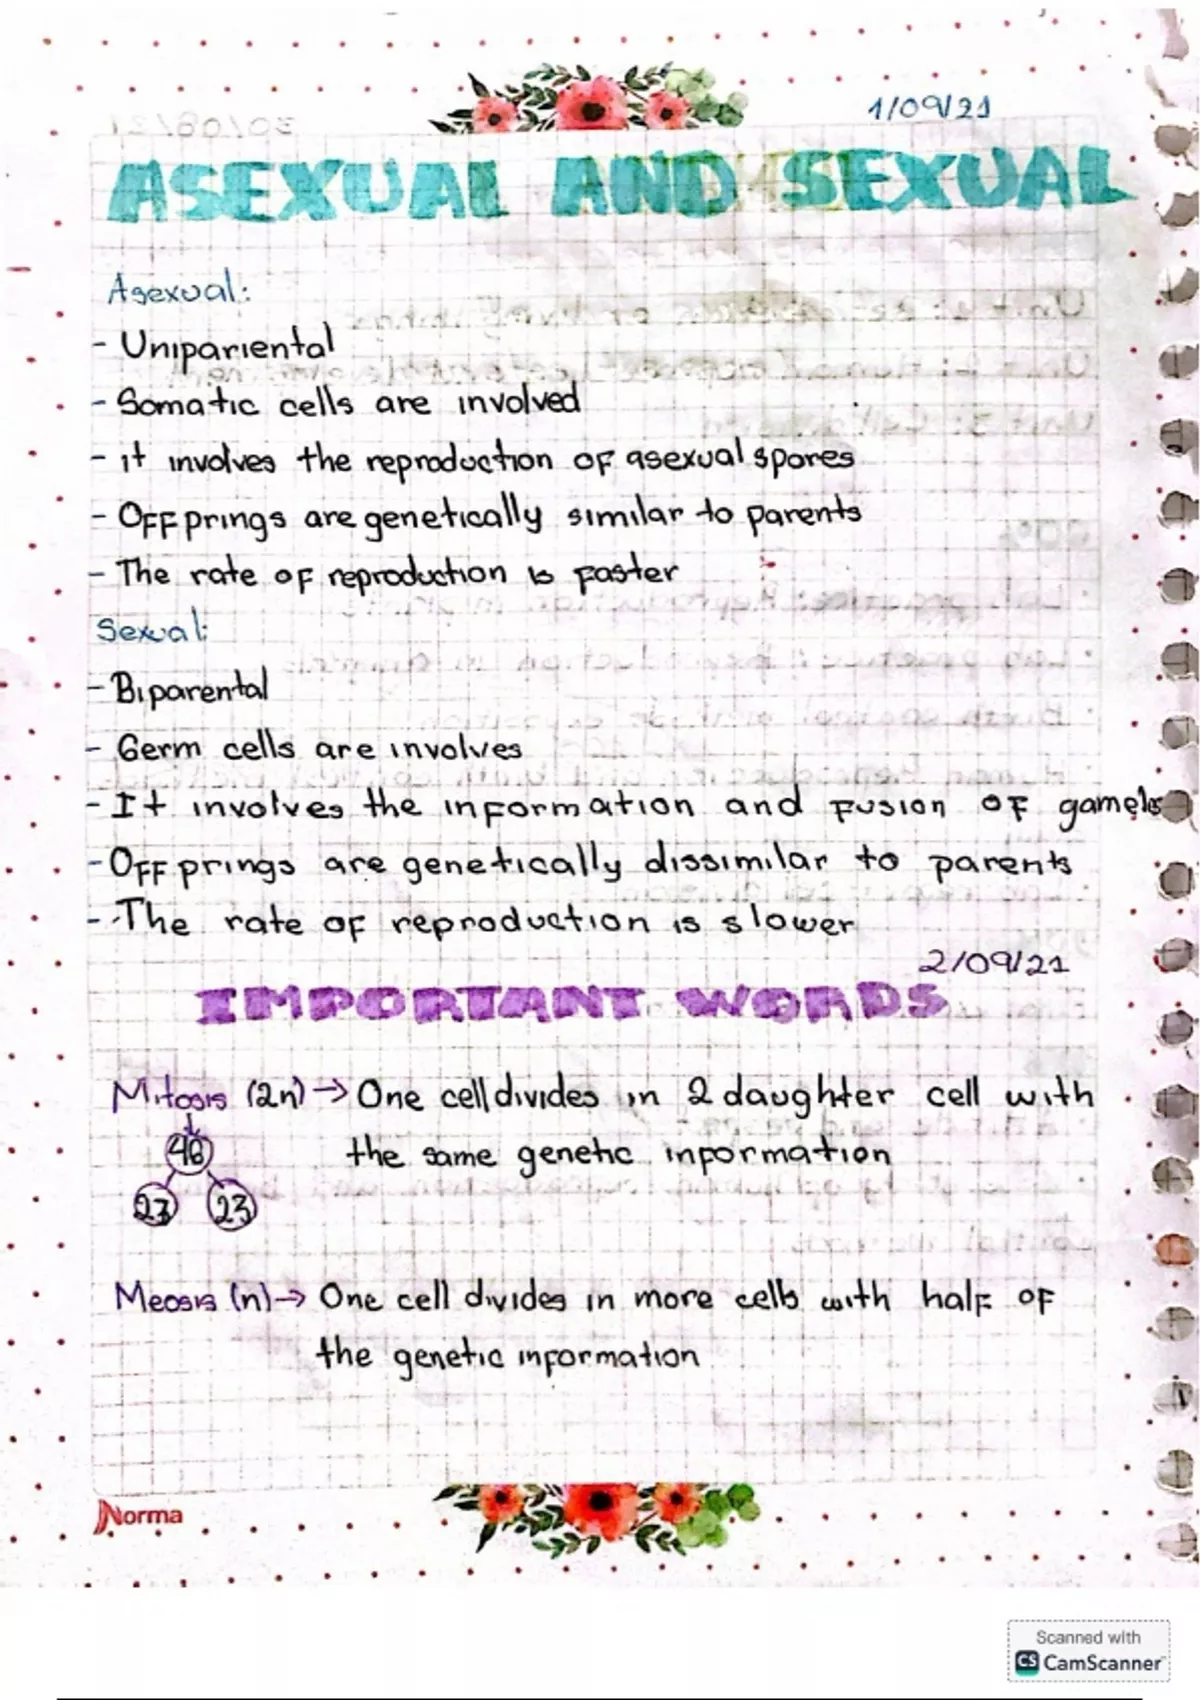 1/09/21
ASEXUAL AND SEXUAL
Asexual:
- Unipariental
- Somatic cells are involved
- it involves the reproduction of asexual spores
- Offprings are genetically similar to parents
- The rate of reproduction is faster
Sexual:
- Biparental
- Germ cells are involves
- It involves the information and fusion of
- Offprings are genetically dissimilar to parents
- The rate of reproduction is slower
2/09/21
IMPORTANT WORDS
Mitosis (2n) → One cell divides in 2 daughter cell with
the same genetic information
46
23 23
Meosis (n) → One cell divides in more cells with half of
the genetic information
Norma
Scanned with
CS CamScanner